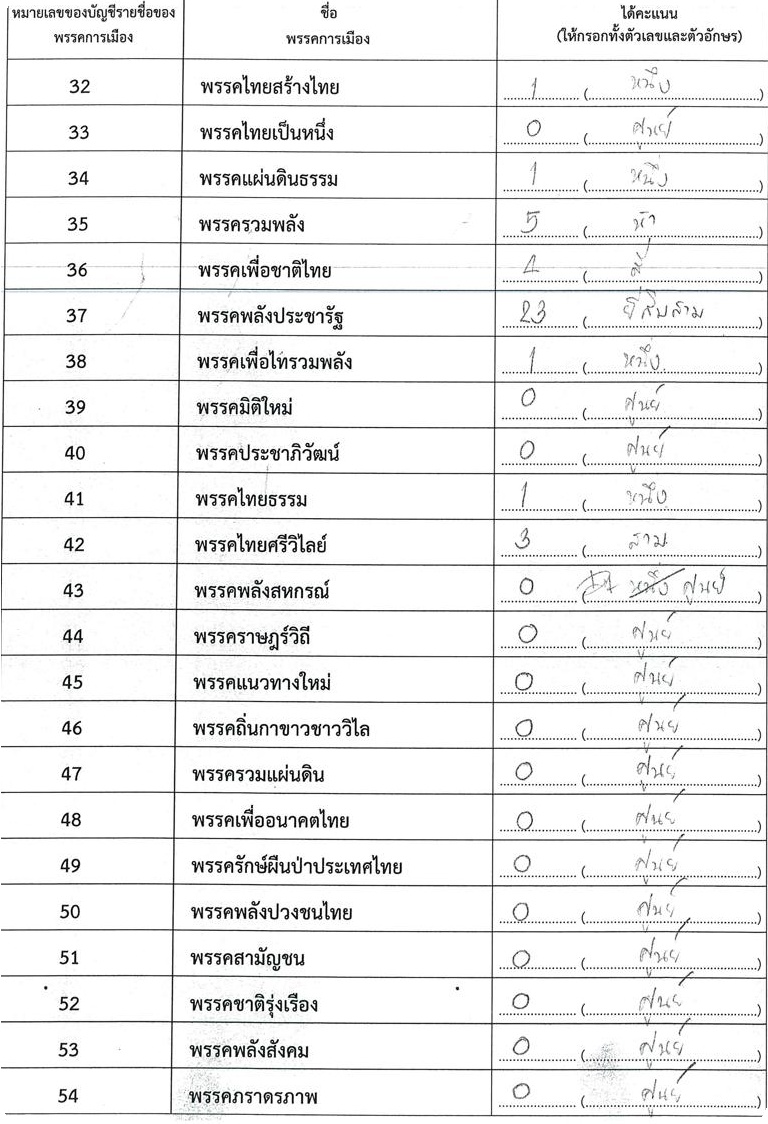 หมายเลขของบัญชีรายชื่อของ ชื่อ ได้คะแนน
พรรคการเมือง พรรคการเมือง (ให้กรอกทั้งตัวเลขและตัวอักษร)
32 พรรคไทยสร้างไทย 1 (หนึ่ง)
33 พรรคไทยเป็นหนึ่ง 0 (ศูนย์)
34 พรรคแผ่นดินธรรม 1 (หนึ่ง)
35 พรรครวมพลัง 5 (ห้า)
36 พรรคเพื่อชาติไทย 4 (สี่)
37 พรรคพลังประชารัฐ 23 (ยี่สิบสาม)
38 พรรคเพื่อไทรวมพลัง 1 (หนึ่ง)
39 พรรคมิติใหม่ 0 (ศูนย์)
40 พรรคประชาภิวัฒน์ 0 (ศูนย์)
41 พรรคไทยธรรม 1 (หนึ่ง)
42 พรรคไทยศรีวิไลย์ 3 (สาม)
43 พรรคพลังสหกรณ์ 0 (หนึ่ง ศูนย์)
44 พรรคราษฎร์วิถี 0 (ศูนย์)
45 พรรคแนวทางใหม่ 0 (ศูนย์)
46 พรรคถิ่นกาขาวชาววิไล 0 (ศูนย์)
47 พรรครวมแผ่นดิน 0 (ศูนย์)
48 พรรคเพื่ออนาคตไทย 0 (ศูนย์)
49 พรรครักษ์ผืนป่าประเทศไทย 0 (ศูนย์)
50 พรรคพลังปวงชนไทย 0 (ศูนย์)
51 พรรคสามัญชน 0 (ศูนย์)
52 พรรคชาติรุ่งเรือง 0 (ศูนย์)
53 พรรคพลังสังคม 0 (ศูนย์)
54 พรรคภราดรภาพ 0 (ศูนย์)